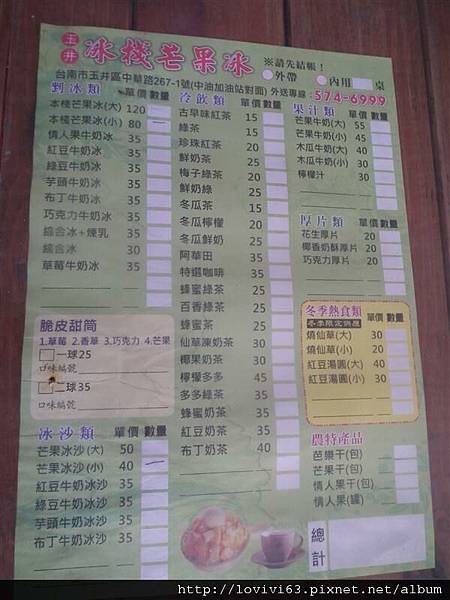 玉井 冰棧芒果冰
※請先結帳！
外帶 內用 桌
台南市玉井區中華路267-1號(中油加油站對面) 外送專線：574-6999
剉冰類 單價 數量
本棧芒果冰(大) 120
本棧芒果冰(小) 80
情人果牛奶冰 35
紅豆牛奶冰 35
綠豆牛奶冰 35
芋頭牛奶冰 35
布丁牛奶冰 35
巧克力牛奶冰 35
綜合冰+煉乳 35
綜合冰 30
草莓牛奶冰 35
脆皮甜筒
1.草莓 2.香草 3.巧克力 4.芒果
一球25
口味編號
二球35
口味編號
冰沙類 單價 數量
芒果冰沙(大) 50
芒果冰沙(小) 40
紅豆牛奶冰沙 35
綠豆牛奶冰沙 35
芋頭牛奶冰沙 35
布丁牛奶冰沙 35
冷飲類 單價 數量
古早味紅茶 15
綠茶 15
珍珠紅茶 20
鮮奶茶 25
梅子綠茶 20
鮮奶綠 25
冬瓜茶 15
冬瓜檸檬 20
冬瓜鮮奶 25
阿華田 35
特選咖啡 35
蜂蜜綠茶 25
百香綠茶 25
蜂蜜茶 25
仙草凍奶茶 30
椰果奶茶 30
檸檬多多 45
多多綠茶 35
蜂蜜奶茶 35
紅豆奶茶 30
布丁奶茶 40
果汁類 單價 數量
芒果牛奶(大) 55
芒果牛奶(小) 45
木瓜牛奶(大) 40
木瓜牛奶(小) 30
檸檬汁 30
厚片類 單價 數量
花生厚片 20
椰香奶酥厚片 20
巧克力厚片 20
冬季熱食類
冬季限定供應 單價 數量
燒仙草(大) 30
燒仙草(小) 20
紅豆湯圓(大) 40
紅豆湯圓(小) 30
農特產品
芭樂干(包)
芒果干(包)
情人果(包)
情人果(罐)
總計
http://lovivi63.pixnet.net/album